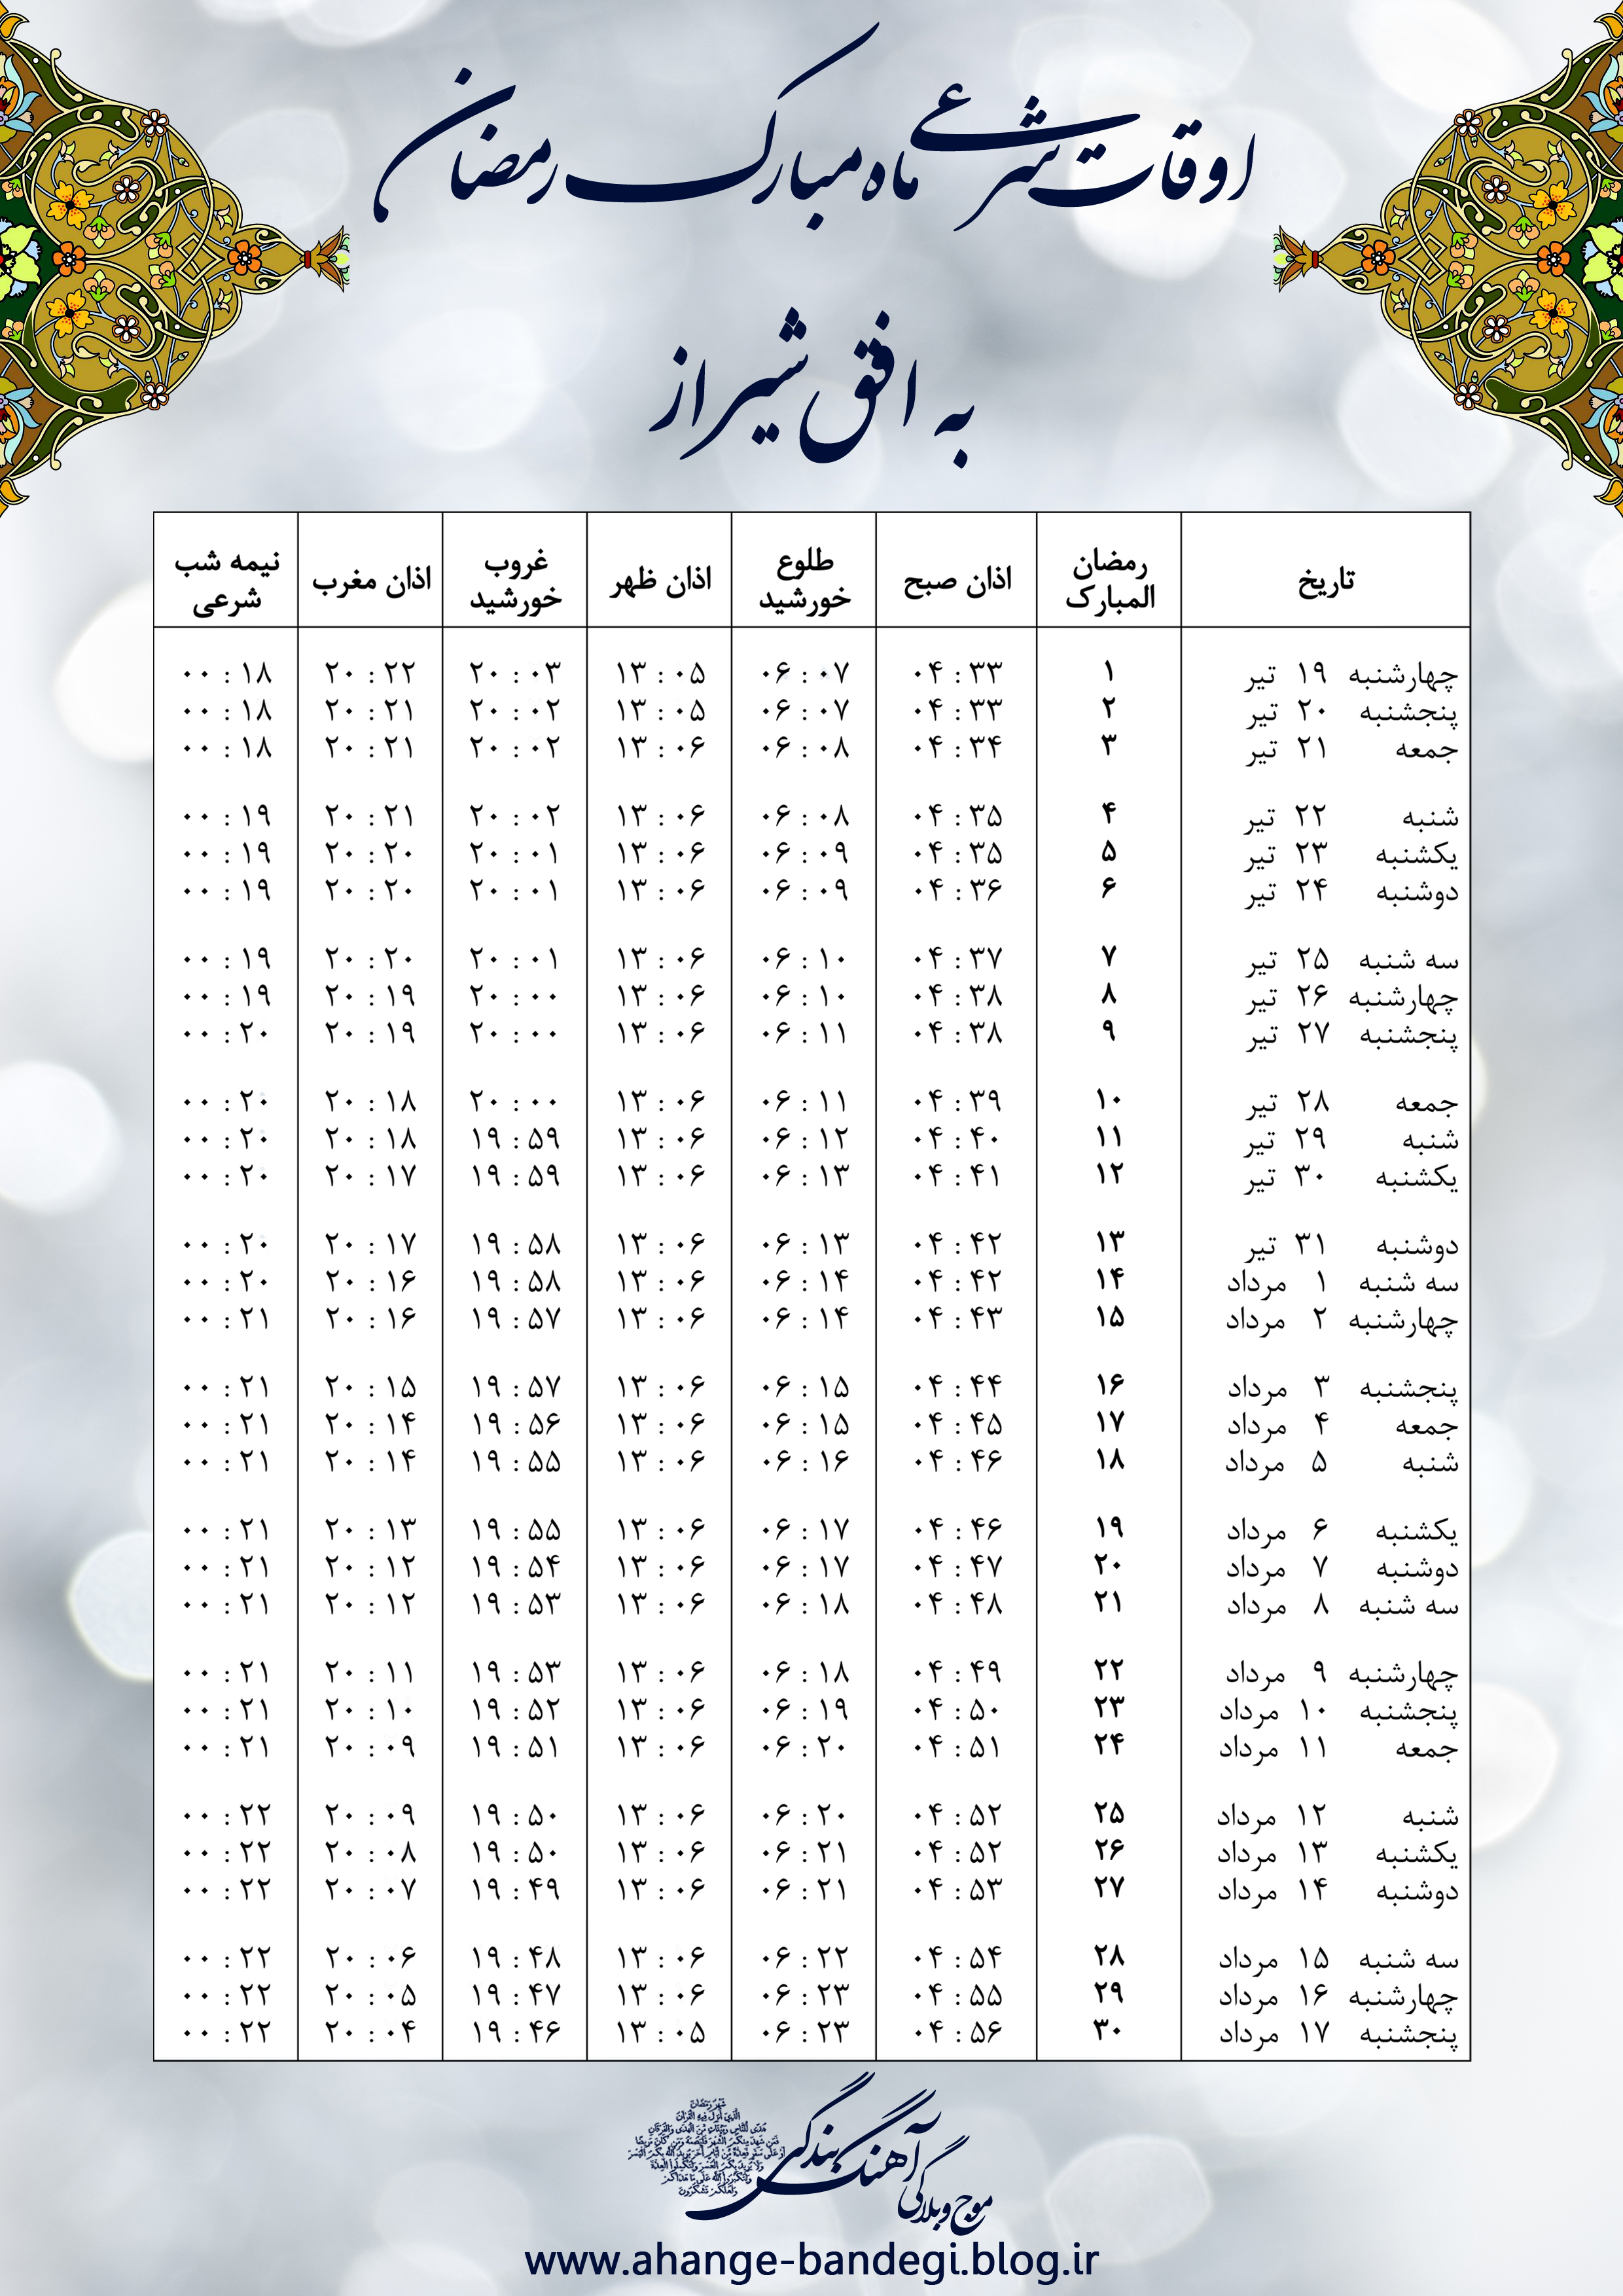 اوقات شرعی ماه مبارک رمضان
به افق شیراز
تاریخ رمضان المبارک اذان صبح طلوع خورشید اذان ظهر غروب خورشید اذان مغرب نیمه شب شرعی
چهارشنبه ۱۹ تیر ۱ ۰۴:۳۳ ۰۶:۰۷ ۱۳:۰۵ ۲۰:۰۳ ۲۰:۲۲ ۰۰:۱۸
پنجشنبه ۲۰ تیر ۲ ۰۴:۳۳ ۰۶:۰۷ ۱۳:۰۵ ۲۰:۰۲ ۲۰:۲۱ ۰۰:۱۸
جمعه ۲۱ تیر ۳ ۰۴:۳۴ ۰۶:۰۸ ۱۳:۰۶ ۲۰:۰۲ ۲۰:۲۱ ۰۰:۱۸
شنبه ۲۲ تیر ۴ ۰۴:۳۵ ۰۶:۰۸ ۱۳:۰۶ ۲۰:۰۲ ۲۰:۲۱ ۰۰:۱۹
یکشنبه ۲۳ تیر ۵ ۰۴:۳۵ ۰۶:۰۹ ۱۳:۰۶ ۲۰:۰۱ ۲۰:۲۰ ۰۰:۱۹
دوشنبه ۲۴ تیر ۶ ۰۴:۳۶ ۰۶:۰۹ ۱۳:۰۶ ۲۰:۰۱ ۲۰:۲۰ ۰۰:۱۹
سه شنبه ۲۵ تیر ۷ ۰۴:۳۷ ۰۶:۱۰ ۱۳:۰۶ ۲۰:۰۱ ۲۰:۲۰ ۰۰:۱۹
چهارشنبه ۲۶ تیر ۸ ۰۴:۳۸ ۰۶:۱۰ ۱۳:۰۶ ۲۰:۰۰ ۲۰:۱۹ ۰۰:۱۹
پنجشنبه ۲۷ تیر ۹ ۰۴:۳۸ ۰۶:۱۱ ۱۳:۰۶ ۲۰:۰۰ ۲۰:۱۹ ۰۰:۲۰
جمعه ۲۸ تیر ۱۰ ۰۴:۳۹ ۰۶:۱۱ ۱۳:۰۶ ۲۰:۰۰ ۲۰:۱۸ ۰۰:۲۰
شنبه ۲۹ تیر ۱۱ ۰۴:۴۰ ۰۶:۱۲ ۱۳:۰۶ ۱۹:۵۹ ۲۰:۱۸ ۰۰:۲۰
یکشنبه ۳۰ تیر ۱۲ ۰۴:۴۱ ۰۶:۱۳ ۱۳:۰۶ ۱۹:۵۹ ۲۰:۱۷ ۰۰:۲۰
دوشنبه ۳۱ تیر ۱۳ ۰۴:۴۲ ۰۶:۱۳ ۱۳:۰۶ ۱۹:۵۸ ۲۰:۱۷ ۰۰:۲۰
سه شنبه ۱ مرداد ۱۴ ۰۴:۴۲ ۰۶:۱۴ ۱۳:۰۶ ۱۹:۵۸ ۲۰:۱۶ ۰۰:۲۰
چهارشنبه ۲ مرداد ۱۵ ۰۴:۴۳ ۰۶:۱۴ ۱۳:۰۶ ۱۹:۵۷ ۲۰:۱۶ ۰۰:۲۱
پنجشنبه ۳ مرداد ۱۶ ۰۴:۴۴ ۰۶:۱۵ ۱۳:۰۶ ۱۹:۵۷ ۲۰:۱۵ ۰۰:۲۱
جمعه ۴ مرداد ۱۷ ۰۴:۴۵ ۰۶:۱۵ ۱۳:۰۶ ۱۹:۵۶ ۲۰:۱۴ ۰۰:۲۱
شنبه ۵ مرداد ۱۸ ۰۴:۴۶ ۰۶:۱۶ ۱۳:۰۶ ۱۹:۵۵ ۲۰:۱۴ ۰۰:۲۱
یکشنبه ۶ مرداد ۱۹ ۰۴:۴۶ ۰۶:۱۷ ۱۳:۰۶ ۱۹:۵۵ ۲۰:۱۳ ۰۰:۲۱
دوشنبه ۷ مرداد ۲۰ ۰۴:۴۷ ۰۶:۱۷ ۱۳:۰۶ ۱۹:۵۴ ۲۰:۱۲ ۰۰:۲۱
سه شنبه ۸ مرداد ۲۱ ۰۴:۴۸ ۰۶:۱۸ ۱۳:۰۶ ۱۹:۵۳ ۲۰:۱۲ ۰۰:۲۱
چهارشنبه ۹ مرداد ۲۲ ۰۴:۴۹ ۰۶:۱۸ ۱۳:۰۶ ۱۹:۵۳ ۲۰:۱۱ ۰۰:۲۱
پنجشنبه ۱۰ مرداد ۲۳ ۰۴:۵۰ ۰۶:۱۹ ۱۳:۰۶ ۱۹:۵۲ ۲۰:۱۰ ۰۰:۲۱
جمعه ۱۱ مرداد ۲۴ ۰۴:۵۱ ۰۶:۲۰ ۱۳:۰۶ ۱۹:۵۱ ۲۰:۰۹ ۰۰:۲۱
شنبه ۱۲ مرداد ۲۵ ۰۴:۵۲ ۰۶:۲۰ ۱۳:۰۶ ۱۹:۵۰ ۲۰:۰۹ ۰۰:۲۲
یکشنبه ۱۳ مرداد ۲۶ ۰۴:۵۲ ۰۶:۲۱ ۱۳:۰۶ ۱۹:۵۰ ۲۰:۰۸ ۰۰:۲۲
دوشنبه ۱۴ مرداد ۲۷ ۰۴:۵۳ ۰۶:۲۱ ۱۳:۰۶ ۱۹:۴۹ ۲۰:۰۷ ۰۰:۲۲
سه شنبه ۱۵ مرداد ۲۸ ۰۴:۵۴ ۰۶:۲۲ ۱۳:۰۶ ۱۹:۴۸ ۲۰:۰۶ ۰۰:۲۲
چهارشنبه ۱۶ مرداد ۲۹ ۰۴:۵۵ ۰۶:۲۳ ۱۳:۰۶ ۱۹:۴۷ ۲۰:۰۵ ۰۰:۲۲
پنجشنبه ۱۷ مرداد ۳۰ ۰۴:۵۶ ۰۶:۲۳ ۱۳:۰۵ ۱۹:۴۶ ۲۰:۰۴ ۰۰:۲۲
موج وبلاگی آهنگ بندگی
www.ahange-bandegi.blog.ir